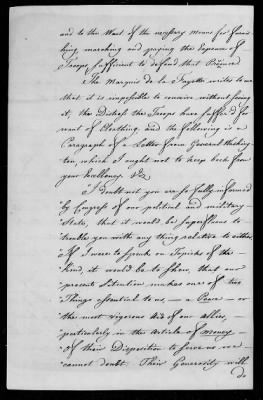 and to the Want of the necessary Means for furnis
hing, marching and paying the Expences of
Troops sufficient to defend that Province
The Marquis de la Fayette writes to me
that it is impossible to conceive without seeing
it, the Distress the Troops have suffer'd for
want of Cloathing, and the following is a
Paragraph of a Letter from General Washing
ton, which I ought not to keep back from
your Excellency. Viz.
"I doubt not you are so fully informed
"by Congress of our political and military
"State, that it would be superfluous to
"trouble you with any thing relative to either.
"If I were to speak on Topicks of the -
"kind, it would be to show, that our
"present situation makes one of two
"Things essential to us, - a Peace - or
"the most vigorous Aid of our allies, -
"particularly in the Article of money -
"Of their Disposition to serve us we
"cannot doubt. Their Generosity will
do